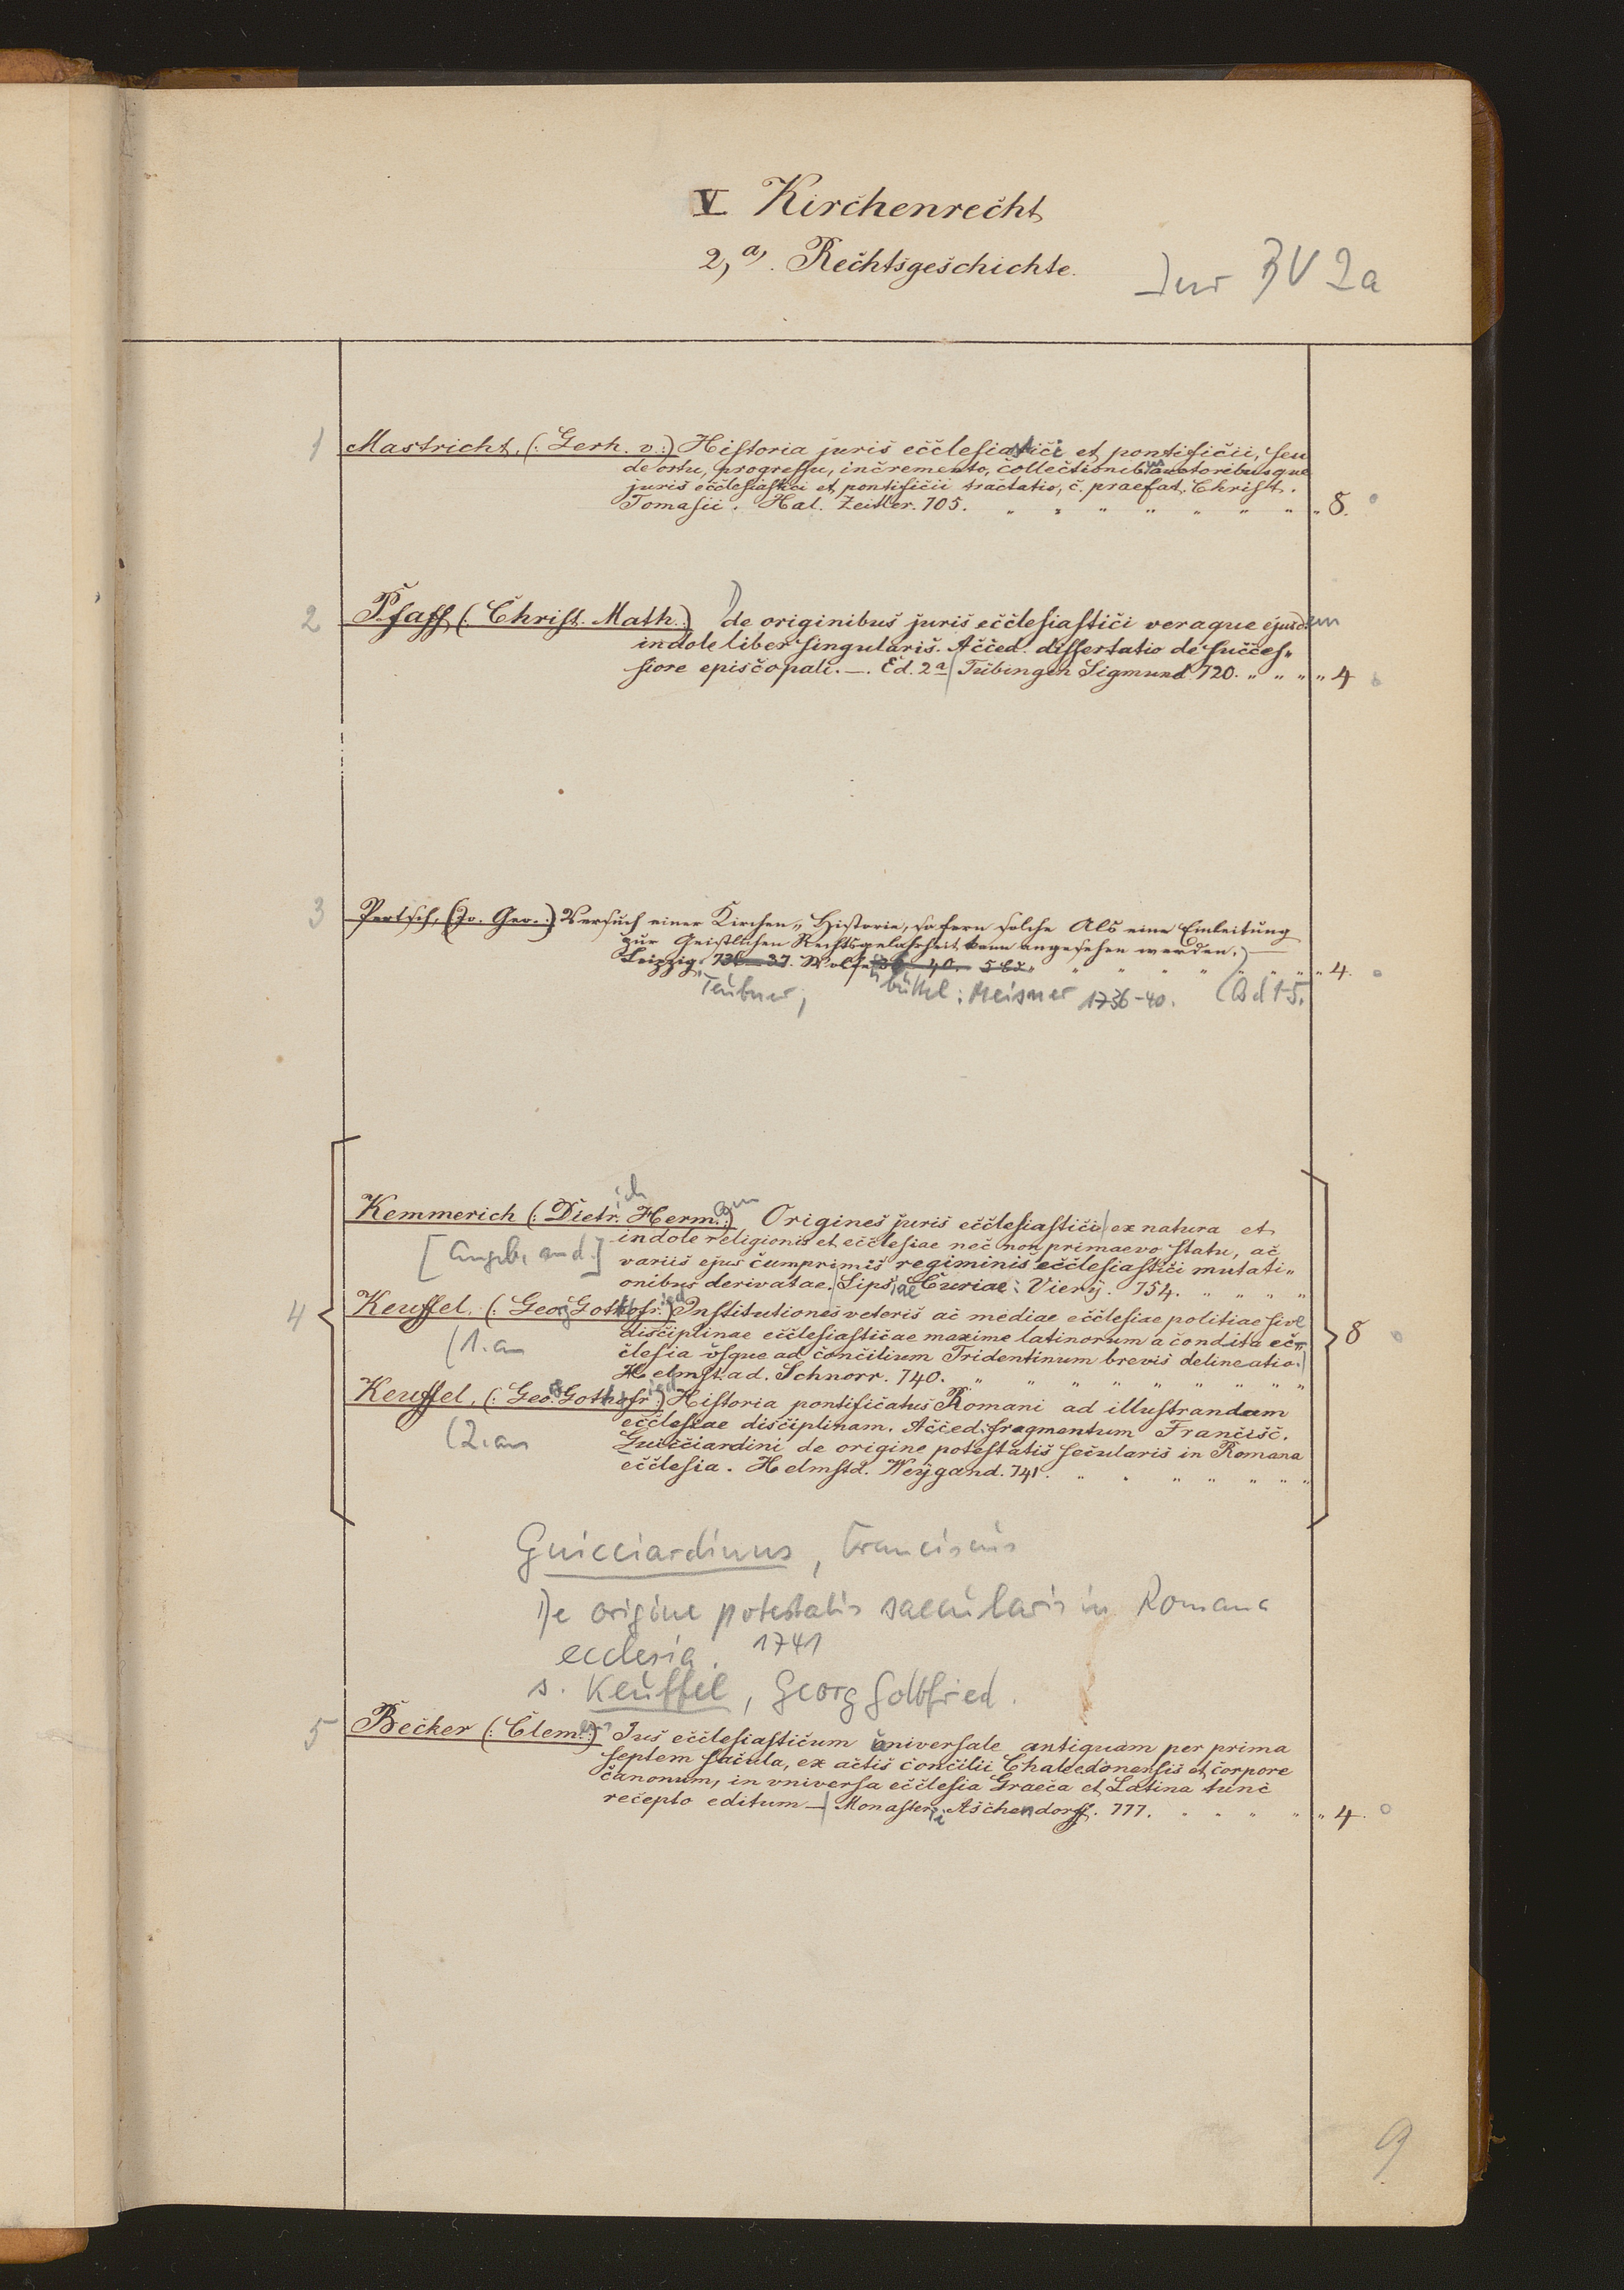 V Kirchenrecht
2, a). Rechtsgeschichte.
Jur B V 2a
1 Mastricht, (: Gerh. v.:) Historia juris ecclesiastici et pontificii, seu
de ortu, progressu, incremento, collectionibus auctoribusque
juris ecclesiastici et pontificii tractatio, c. praefat. Christ.
Tomasii. Hal. Zeitler. 705. " " " " " " " " 8.
2 Pfaff (: Christ. Math.) De originibus juris ecclesiastici veraque ejusdem
indole liber singularis. Acced. dissertatio de succes„
siore episcopali. —. Ed. 2a Tübingen Sigmund 720. " " " " 4
3 Pertsch, (Jo. Geo.:) Versuch einer Kirchen„ Historie, sofern solche Als eine Einleitung
zur Geistlichen Rechtsgelahrheit kann angesehen werden. —
Leipzig. 736–37. Wolfenb 38–40. 5 Bd. " " " " " " " 4.
Teubner; büttel: Meisner 1736-40. (Bd 1-5.
Kemmerich (: Dietrich Hermann:) Origines juris ecclesiastici ex natura et
indole religionis et ecclesiae nec non primaevo statu, ac
[Angeb. and.] variis ejus cumprimis regiminis ecclesiastici mutati„
onibus derivatae. Lipsiae Curiae: Vierij. 754. " " " "
4 Keuffel, (: Georg Gottfried:) Institutiones veteris ac mediae ecclesiae politiae sive
(1. an disciplinae ecclesiasticae maxime latinorum a condita ec„ 8
clesia vsque ad concilium Tridentinum brevis delineatio.
Helmstad. Schnorr. 740. " " " " " " " " "
Keuffel, (: Georg Gottfried:) Historia pontificatus Romani ad illustrandam
ecclesiae disciplinam. Acced. fragmentum Francisc.
(2. an Guicciardini de origine potestatis secularis in Romana
ecclesia. Helmstd. Weÿgand. 741. " " " " " " "
Guicciardinus, Franciscus
De origine potestatis saecularis in Romana
ecclesia. 1741
s. Keuffel, Georg Gottfried.
5 Becker (: Clemens:) Jus ecclesiasticum universale antiquam per prima
septem sacula, ex actis concilii Chalcedonensis et corpore
canonum, in vniversa ecclesia Graeca et Latina tunc
recepto editum — Monasterii Aschendorff. 777. " " " " " 4.
9